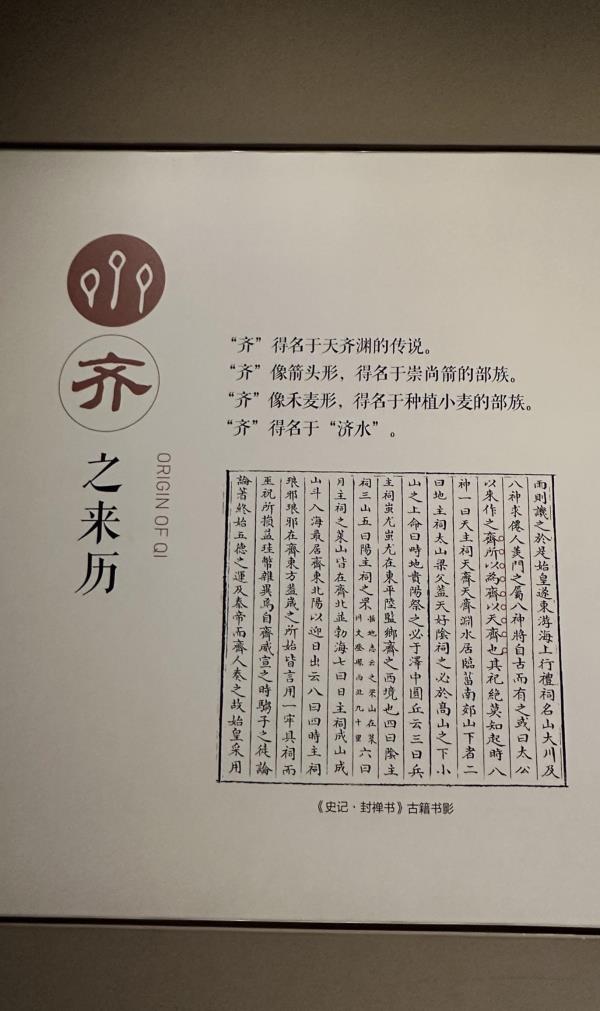 齐
之来历
ORIGIN OF QI
“齐”得名于天齐渊的传说。
“齐”像箭头形，得名于崇尚箭的部族。
“齐”像禾麦形，得名于种植小麦的部族。
“齐”得名于“济水”。
雨則譏之於是始皇遂東游海上行禮祠名山大川及
八神求僊人羨門之屬八神將自古而有之或曰太公
以來作之齊所以為齊以天齊也其祀絕莫知起時八
神一曰天主祠天齊天齊淵水居臨菑南郊山下者二
曰地主祠太山梁父蓋天好陰祠之必於高山之下小
山之上命曰畤地貴陽祭之必于澤中圜丘云三曰兵
主祠蚩尤蚩尤在東平陸監鄉齊之西境也四曰陰主
祠三山五曰陽主祠之罘括地志云之罘山在萊州文登縣西北九十里六曰
月主祠之萊山皆在齊北並勃海七曰日主祠成山成
山斗入海最居齊東北陽以迎日出云八曰四時主祠
琅邪琅邪在齊東方蓋歲之所始皆言用一牢具祠而
巫祝所損益珪幣雜異焉自齊威宣之時騶子之徒論
論著終始五德之運及秦帝而齊人奏之故始皇采用
《史记·封禅书》古籍书影